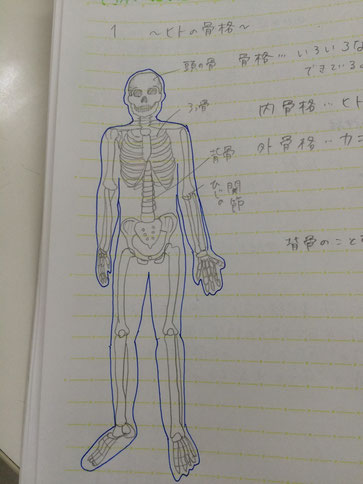 1 〜ヒトの骨格〜
頭の骨
骨格… いろいろな
できている
ろっ骨
内骨格… ヒト
背骨
外骨格… カニ
ひじの関節
背骨のこと